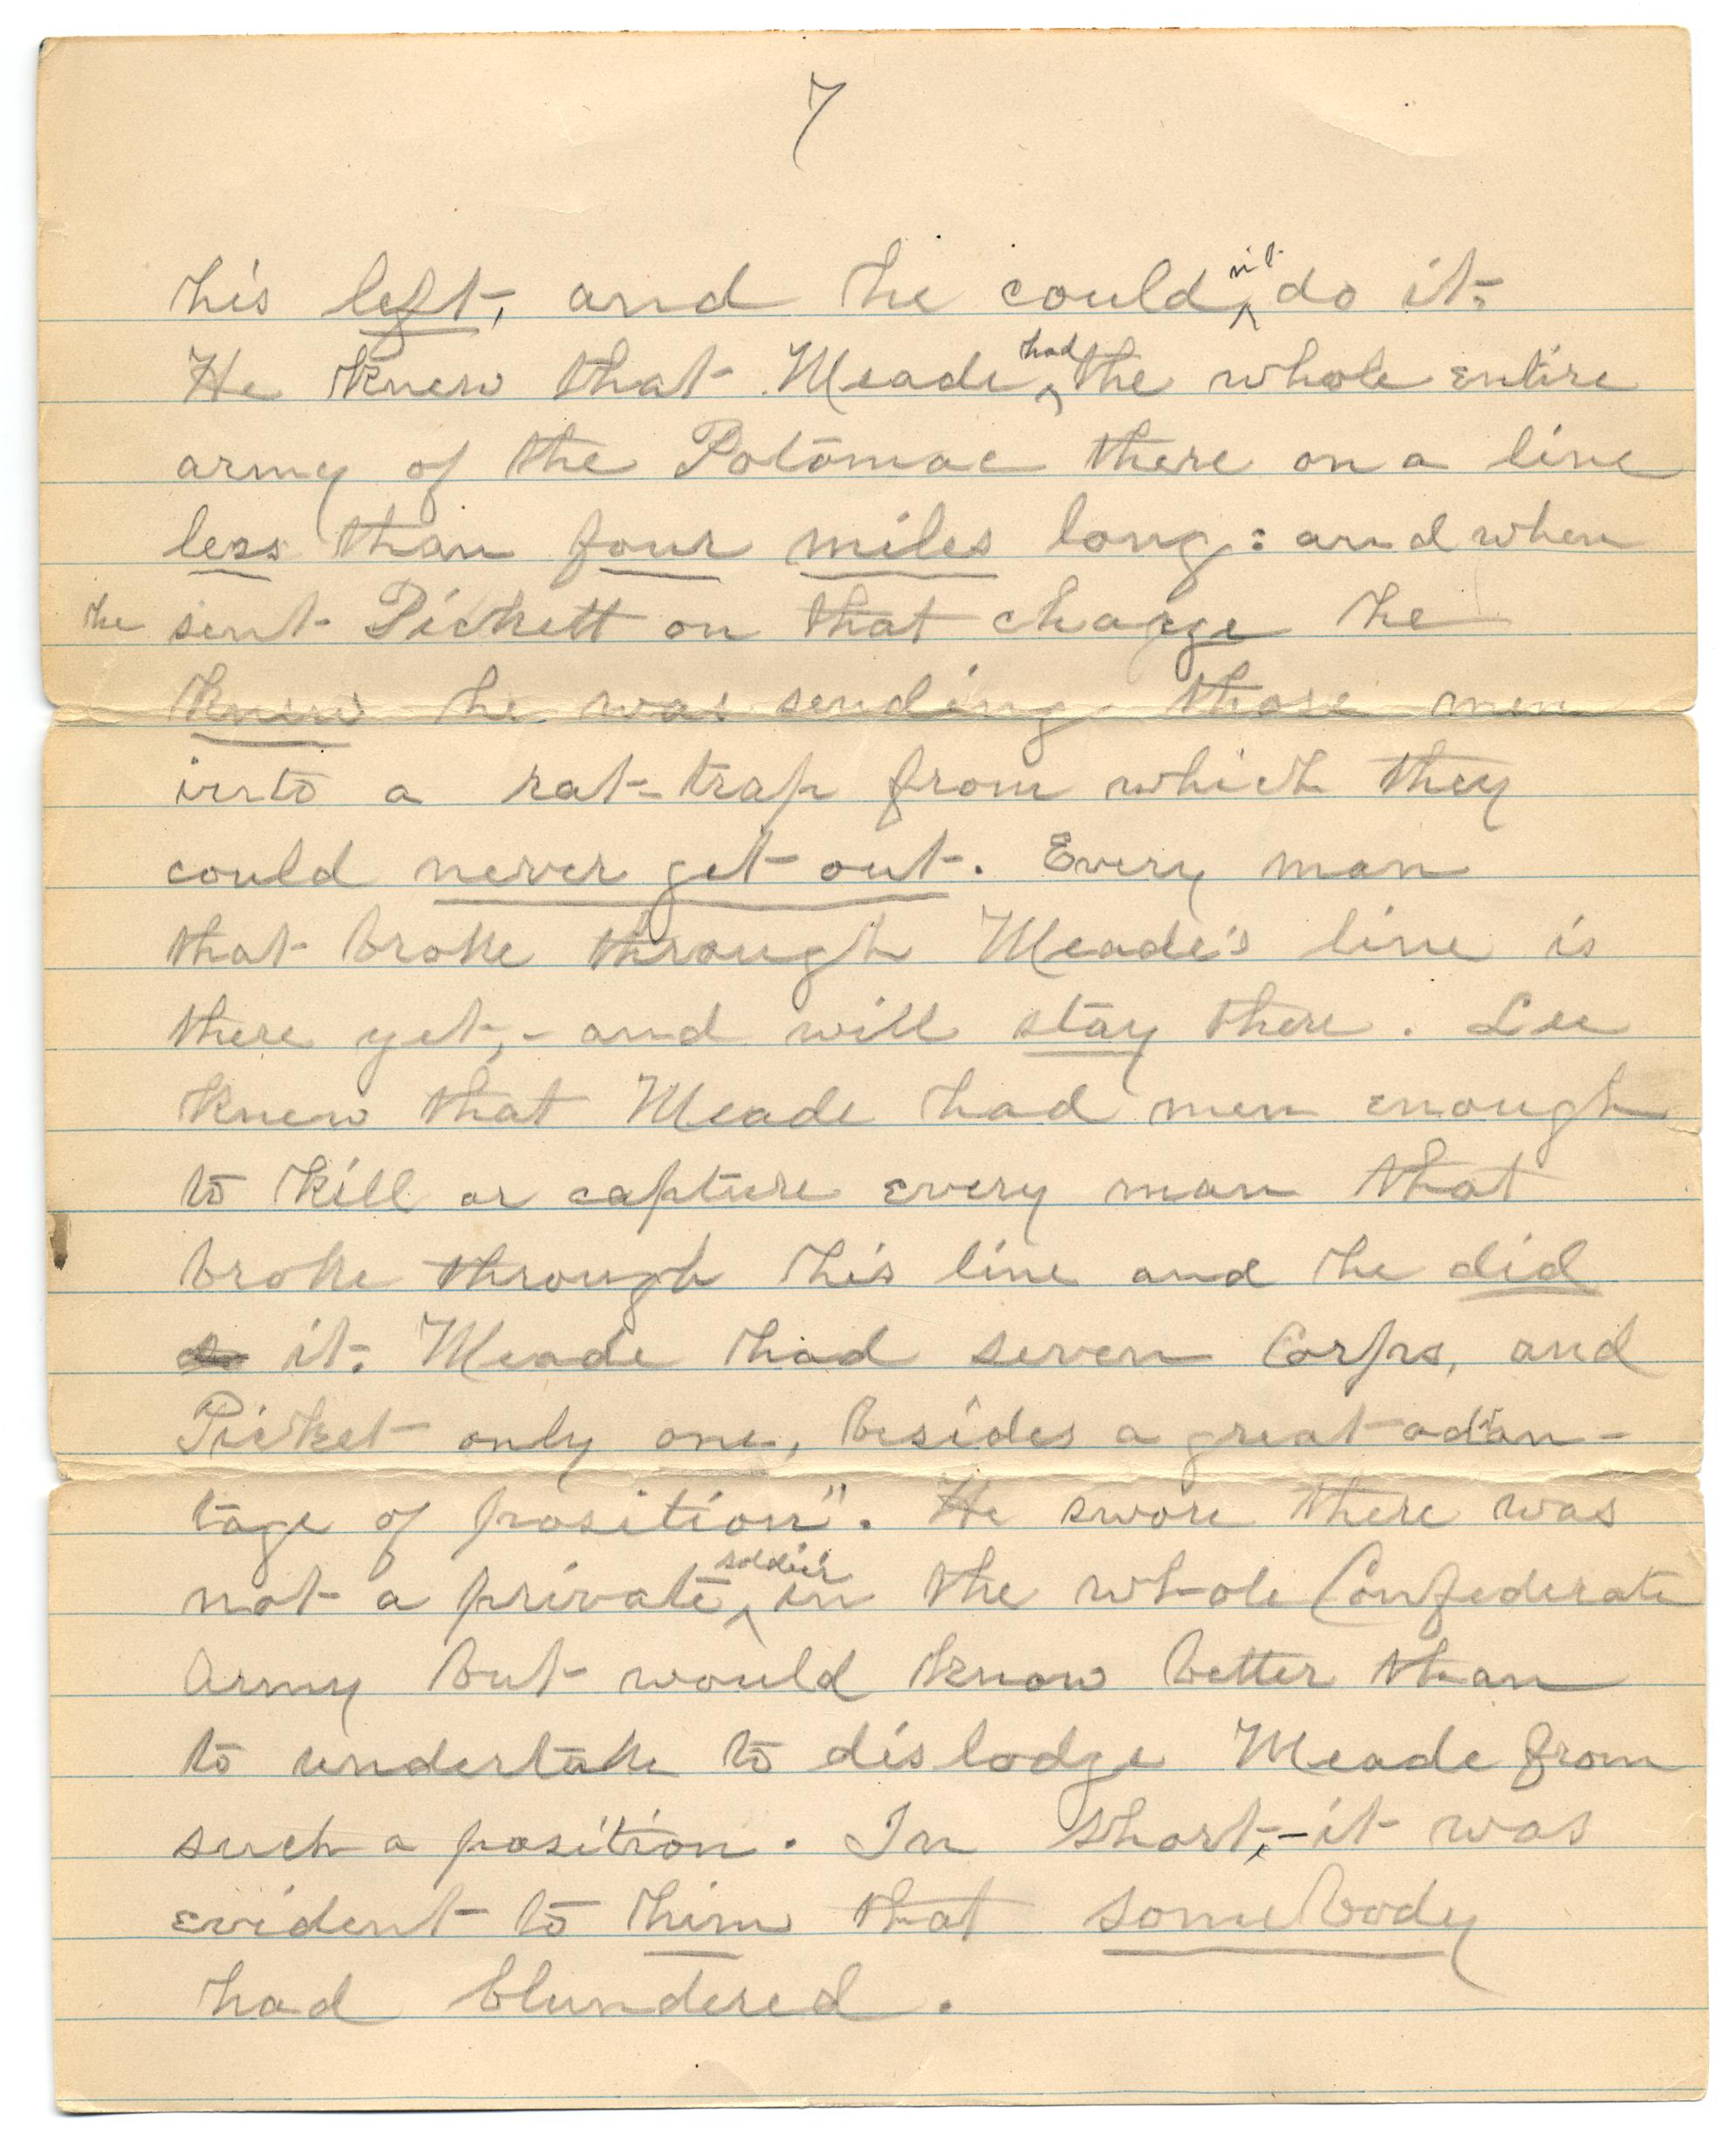 7
his left, and he could n't do it.
He knew that Meade had the whole entire
army of the Potomac there on a line
less than four miles long: and when
he sent Pickett on that charge he
knew he was sending those men
into a rat-trap from which they
could never get out. Every man
that broke through Meade's line is
there yet,- and will stay there. Lee
knew that Meade had men enough
to kill or capture every man that
broke through his line and he did
it. Meade had seven Corps, and
Picket only one, besides a great advan-
tage of position". He swore there was
not a private soldier in the whole Confederate
Army but would know better than
to undertake to dislodge Meade from
such a position. In short,- it was
evident to him that somebody
had blundered.